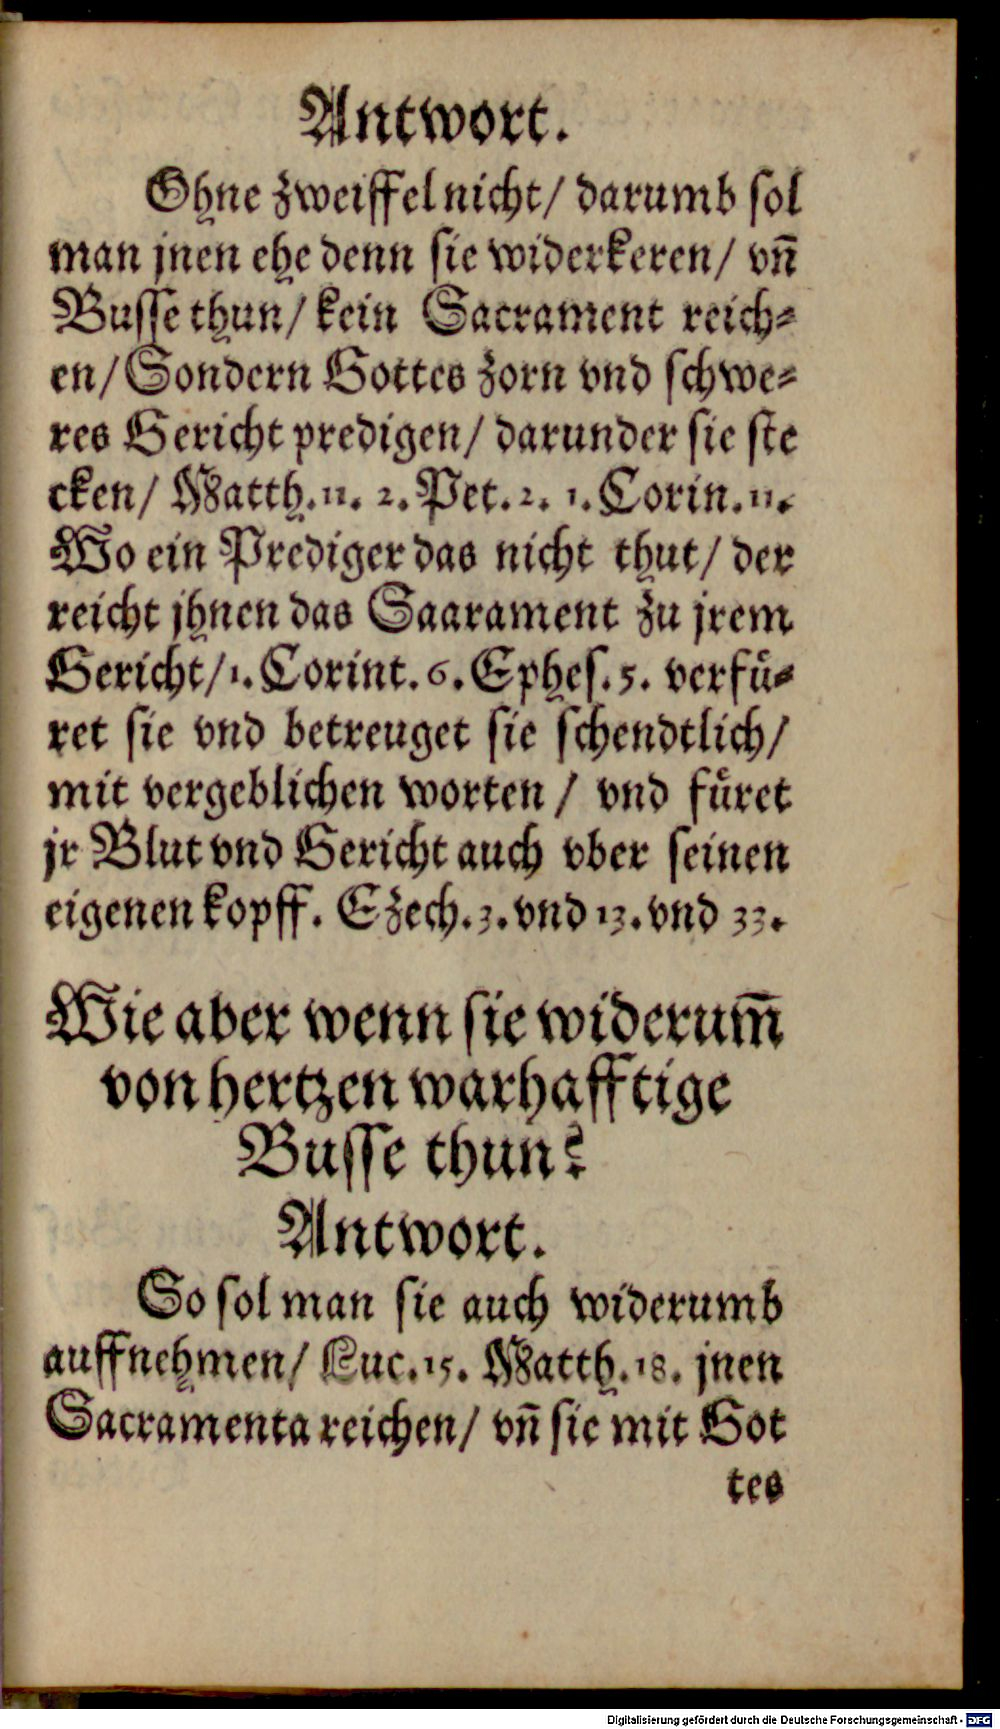 Antwort.
Ohne zweiffel nicht/ darumb sol
man jnen ehe denn sie widerkeren/ vn̄
Busse thun/ kein Sacrament reich⸗
en/ Sondern Gottes zorn vnd schwe⸗
res Gericht predigen/ darunder sie ste
cken/ Matth. 11. 2. Pet. 2. 1. Corin. 11.
Wo ein Prediger das nicht thut/ der
reicht jhnen das Saarament zu jrem
Gericht/ 1. Corint. 6. Ephes. 5. verfuͤ⸗
ret sie vnd betreuget sie schendtlich/
mit vergeblichen worten / vnd fuͤret
jr Blut vnd Gericht auch vber seinen
eigenen kopff. Ezech. 3. vnd 13. vnd 33.
Wie aber wenn sie widerum̄
von hertzen warhafftige
Busse thun?
Antwort.
So sol man sie auch widerumb
auffnehmen/ Luc. 15. Matth. 18. jnen
Sacramenta reichen/ vn̄ sie mit Got
tes
Digitalisierung gefördert durch die Deutsche Forschungsgemeinschaft - DFG